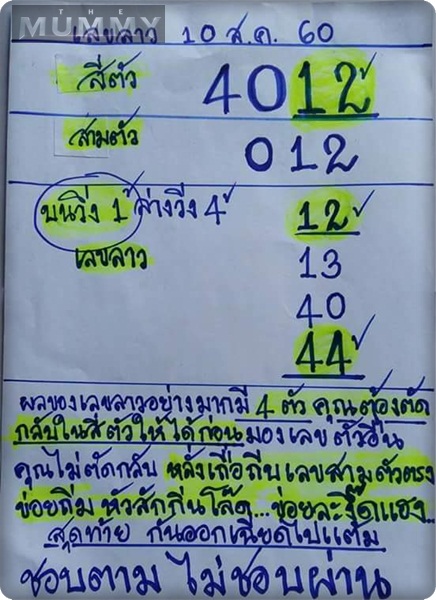 THE
MUMMY
เลขลาว 10 ส.ค. 60
สี่ตัว 4012
สามตัว 012
บนวิ่ง 1 ล่างวิ่ง 4 12
เลขลาว 13
40
44
ผลของเลขลาวอย่างมากมี 4 ตัว คุณต้องตัด
กลับในสี่ตัวให้ได้ก่อนมองเลขตัวอื่น
คุณไม่ตัดกลับ หลังเถื่อถืบเลขสามตัวตรง
ข่อยถิ่ม หัวสักกิ่นโล้ด... ข่อยละงึดแฮง..
สุดท้าย กันออกเฉียดไปแต้ม
ชอบตาม ไม่ชอบผ่าน